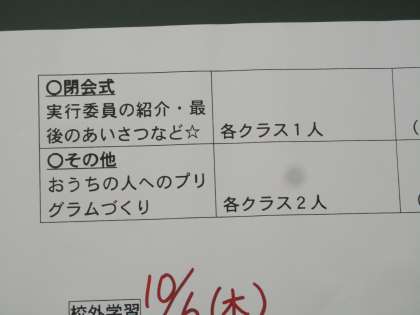 ○閉会式
実行委員の紹介・最
後のあいさつなど☆
各クラス1人
(
○その他
おうちの人へのプリ
グラムづくり
各クラス2人
(
校外学習
10/6(木)